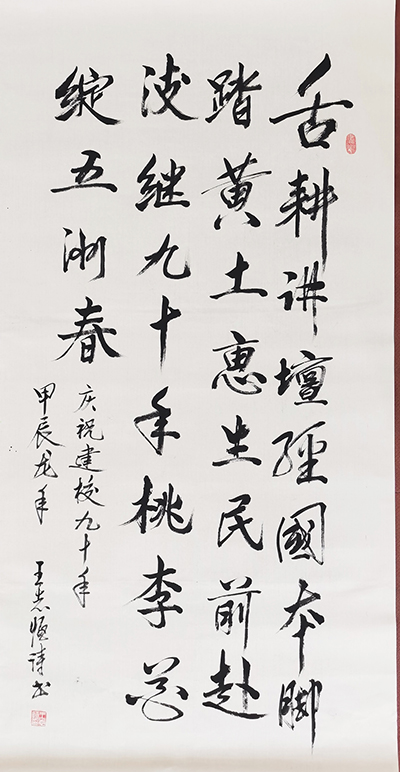 舌耕讲壇經國本脚
踏黄土惠生民前赴
後继九十年桃李花
绽五洲春
庆祝建校九十年
甲辰龙年 王志恒诗书